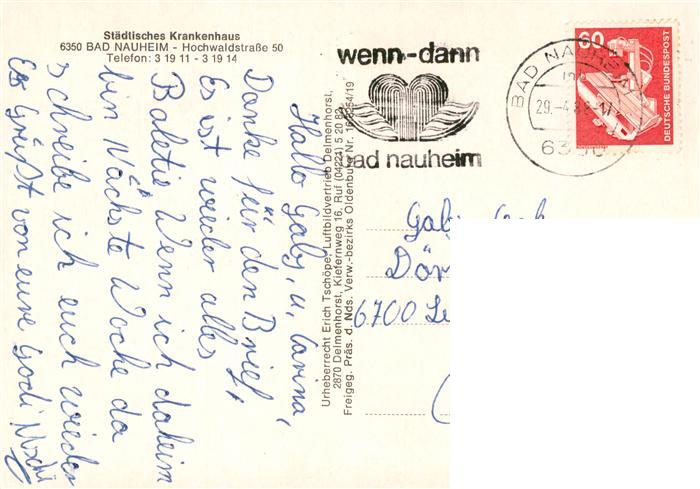 Städtisches Krankenhaus
6350 BAD NAUHEIM - Hochwaldstraße 50
Telefon: 3 19 11 - 3 19 14
Hallo Gaby, u, Carina,
Danke für den Brief,
Es ist wieder alles
Baletie Wenn ich daheim
bin Nächste Woche da
schreibe ich euch wieder
Es Grüßt von eure Godi
Urheberrecht Erich Tschöpe, Luftbildvertrieb Delmenhorst,
2870 Delmenhorst, Kiefernweg 16, Ruf (04221) 5 20 89
Freigeg. Präs. d. Nds. Verw.-bezirks Oldenburg Nr.
wenn-dann
bad nauheim
BAD NAUHEIM
29.-4.8
6350
60
DEUTSCHE BUNDESPOST
Gaby
Dör
6700 Le